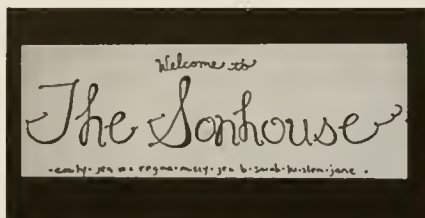 Welcome to
The Sonhouse
·emily·jen m·regina·missy·jen b·sarah·kristen·jane·